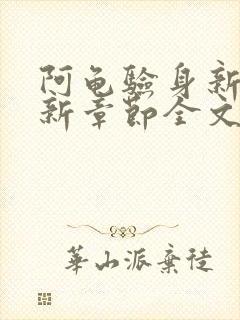 阿龟驗身新
新章節全文
華山派棄徒